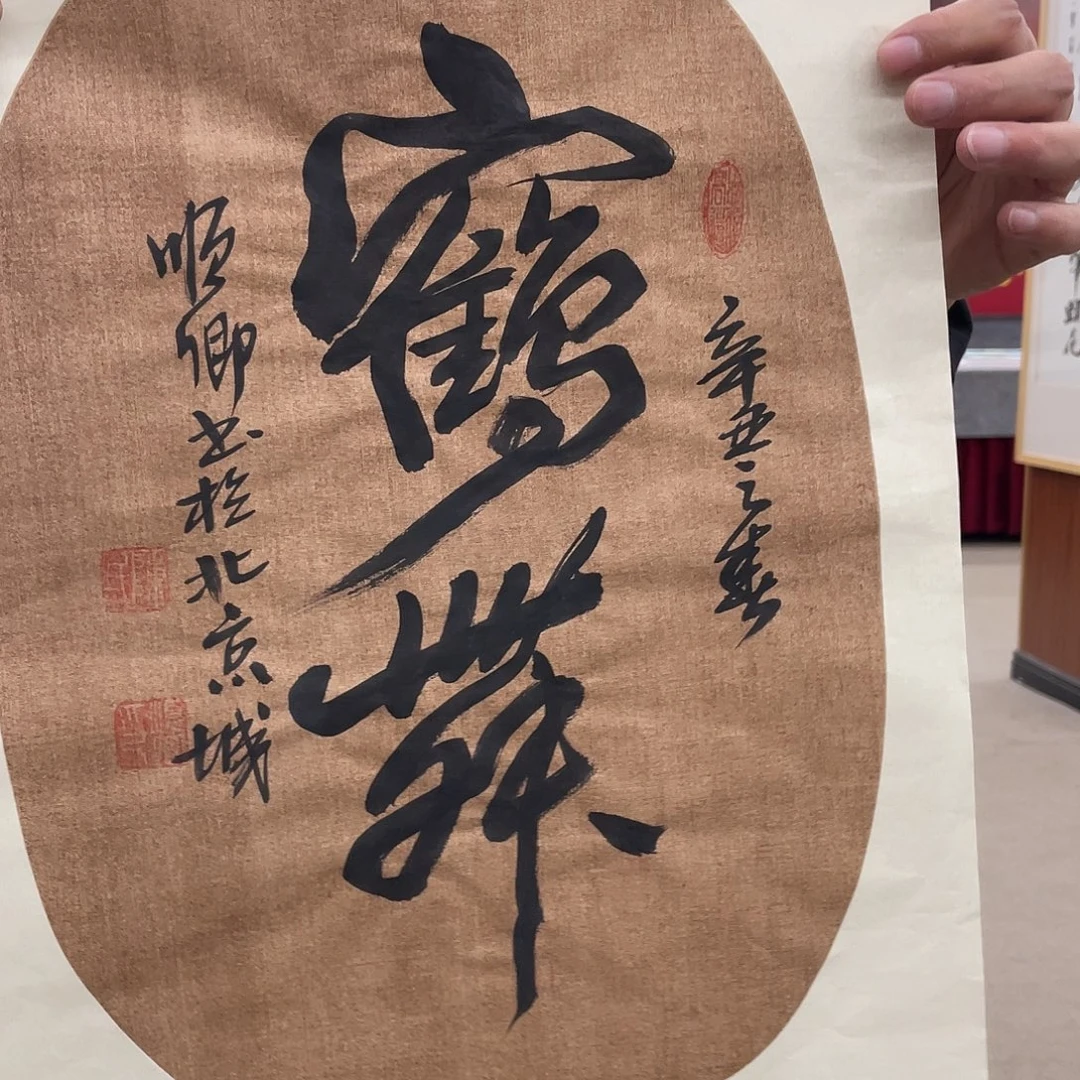 辛丑之春
鶴舞
順卿书於北京城